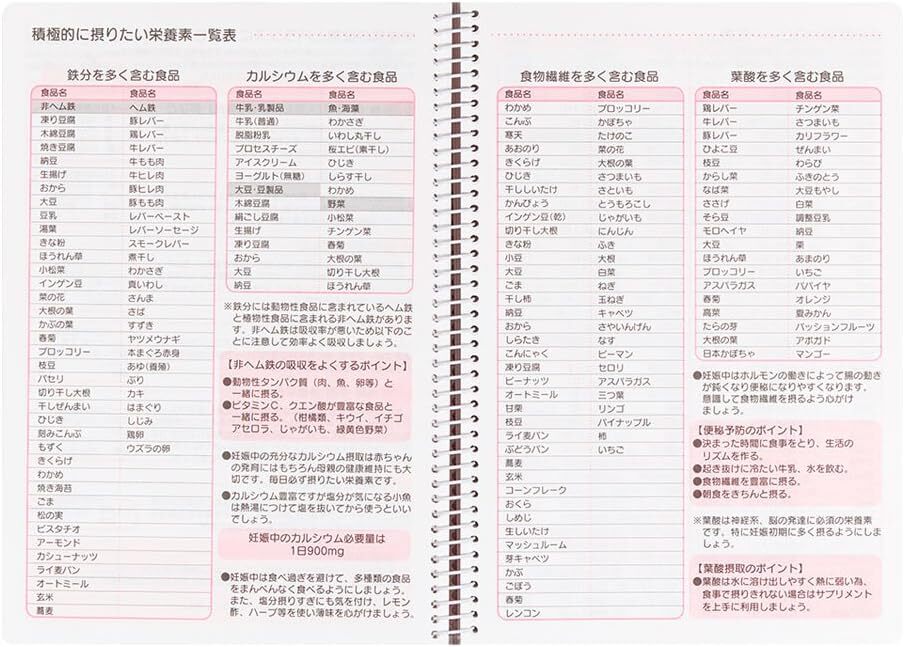 積極的に摂りたい栄養素一覧表
鉄分を多く含む食品
食品名 食品名
非ヘム鉄 ヘム鉄
凍り豆腐 豚レバー
木綿豆腐 鶏レバー
焼き豆腐 牛レバー
納豆 牛もも肉
生揚げ 牛ヒレ肉
おから 豚ヒレ肉
大豆 豚もも肉
豆乳 レバーペースト
湯葉 レバーソーセージ
きな粉 スモークレバー
ほうれん草 煮干し
小松菜 わかさぎ
インゲン豆 真いわし
菜の花 さんま
大根の葉 さば
かぶの葉 すずき
春菊 ヤツメウナギ
ブロッコリー 本まぐろ赤身
枝豆 あゆ（養殖）
パセリ ぶり
切り干し大根 カキ
干しぜんまい はまぐり
ひじき しじみ
刻みこんぶ 鶏卵
もずく ウズラの卵
きくらげ
わかめ
焼き海苔
ごま
松の実
ピスタチオ
アーモンド
カシューナッツ
ライ麦パン
オートミール
玄米
蕎麦
カルシウムを多く含む食品
食品名 食品名
牛乳・乳製品 魚・海藻
牛乳（普通） わかさぎ
脱脂粉乳 いわし丸干し
プロセスチーズ 桜エビ（素干し）
アイスクリーム ひじき
ヨーグルト（無糖） しらす干し
大豆・豆製品 わかめ
木綿豆腐 野菜
絹ごし豆腐 小松菜
生揚げ チンゲン菜
凍り豆腐 春菊
おから 大根の葉
大豆 切り干し大根
納豆 ほうれん草
※鉄分には動物性食品に含まれているヘム鉄
と植物性食品に含まれる非ヘム鉄がありま
す。非ヘム鉄は吸収率が悪いため以下のこ
とに注意して効率よく吸収しましょう。
【非ヘム鉄の吸収をよくするポイント】
●動物性タンパク質（肉、魚、卵等）と
一緒に摂る。
●ビタミンC、クエン酸が豊富な食品と
一緒に摂る。（柑橘類、キウイ、イチゴ
アセロラ、じゃがいも、緑黄色野菜）
●妊娠中の充分なカルシウム摂取は赤ちゃん
の発育にはもちろん母親の健康維持にも大
切です。毎日必ず摂りたい栄養素です。
●カルシウム豊富ですが塩分が気になる小魚
は熱湯につけて塩を抜いてから使うといい
でしょう。
妊娠中のカルシウム必要量は
1日900mg
●妊娠中は食べ過ぎを避けて、多種類の食品
をまんべんなく食べるようにしましょう。
また、塩分摂りすぎにも気を付け、レモン
酢、ハーブ等を使い薄味を心がけましょう。
食物繊維を多く含む食品
食品名 食品名
わかめ ブロッコリー
こんぶ かぼちゃ
寒天 たけのこ
あおのり 菜の花
きくらげ 大根の葉
ひじき さつまいも
干ししいたけ さといも
かんぴょう とうもろこし
インゲン豆（乾） じゃがいも
切り干し大根 にんじん
きな粉 ふき
小豆 大根
大豆 白菜
ごま ねぎ
干し柿 玉ねぎ
納豆 キャベツ
おから さやいんげん
しらたき なす
こんにゃく ピーマン
凍り豆腐 セロリ
ピーナッツ アスパラガス
オートミール 三つ葉
甘栗 リンゴ
枝豆 パイナップル
ライ麦パン 柿
ぶどうパン いちご
蕎麦
玄米
コーンフレーク
おくら
しめじ
生しいたけ
マッシュルーム
芽キャベツ
かぶ
ごぼう
春菊
レンコン
葉酸を多く含む食品
食品名 食品名
鶏レバー チンゲン菜
牛レバー さつまいも
豚レバー カリフラワー
ひよこ豆 ぜんまい
枝豆 わらび
からし菜 ふきのとう
なば菜 大豆もやし
ささげ 白菜
そら豆 調整豆乳
モロヘイヤ 納豆
大豆 栗
ほうれん草 あまのり
ブロッコリー いちご
アスパラガス パパイヤ
春菊 オレンジ
高菜 夏みかん
たらの芽 パッションフルーツ
大根の葉 アボガド
日本かぼちゃ マンゴー
●妊娠中はホルモンの働きによって腸の動き
が鈍くなり便秘になりやすくなります。
意識して食物繊維を摂るよう心がけ
ましょう。
【便秘予防のポイント】
●決まった時間に食事をとり、生活の
リズムを作る。
●起き抜けに冷たい牛乳、水を飲む。
●食物繊維を豊富に摂る。
●朝食をきちんと摂る。
※葉酸は神経系、脳の発達に必須の栄養素
です。特に妊娠初期に多く摂るようにしま
しょう。
【葉酸摂取のポイント】
●葉酸は水に溶け出しやすく熱に弱い為、
食事で摂りきれない場合はサプリメント
を上手に利用しましょう。